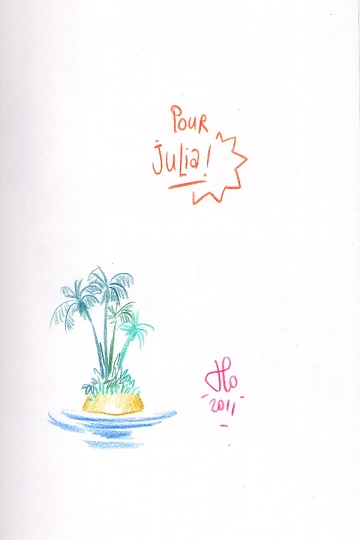 Pour
Julia!
2011